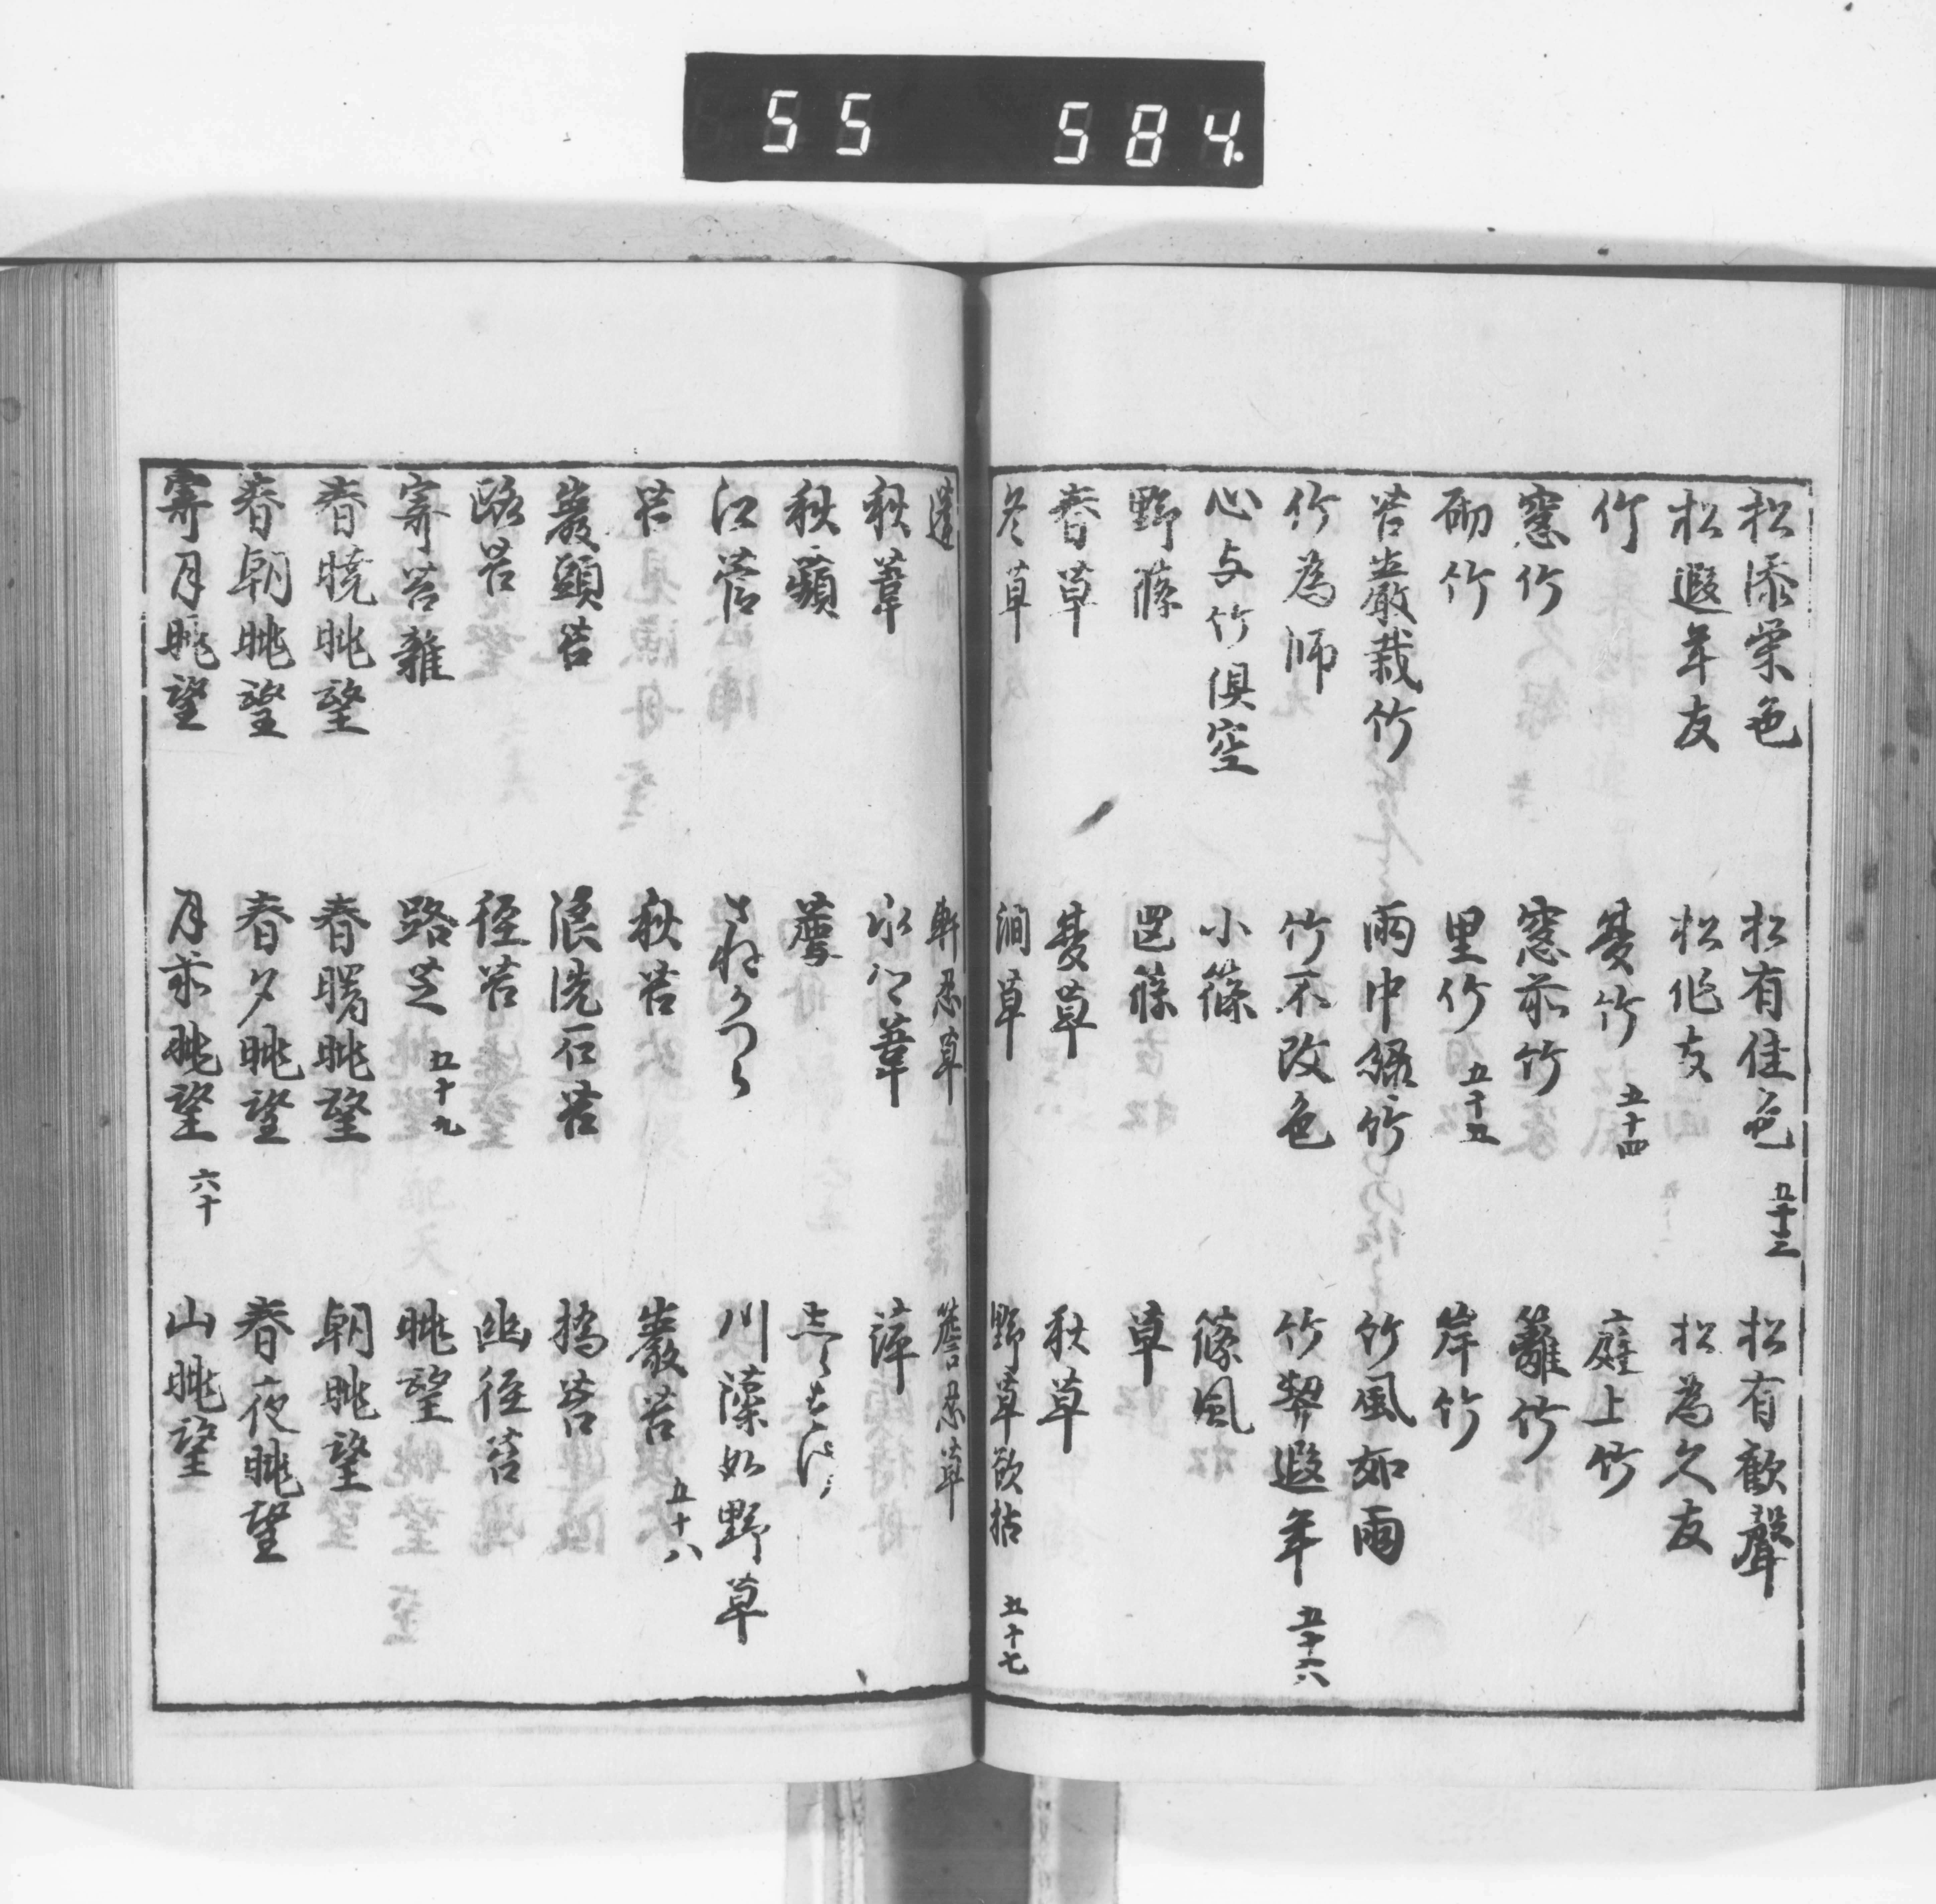 55 584
松添栄色 松有佳色 五十三 松有歓聲
松遐年友 松作友 松為久友
竹 夏竹 五十四 庭上竹
窓竹 窓前竹 籬竹
砌竹 里竹 五十五 岸竹
苔巌栽竹 雨中緑竹 竹風如雨
竹為師 竹不改色 竹契遐年 五十六
心与竹倶空 小篠 篠風
野篠 岡篠 草
春草 夏草 秋草
冬草 澗草 野草欲枯 五十七
蓬 軒忍草 簷忍草
秋葦 氷江葦 萍
秋蘋
江菅 さねかつら 川藻如野草
苔 秋苔 巌苔 五十八
巌頭苔 浪洗石苔 橋苔
路苔 径苔 幽径苔
寄苔雑 路芝 五十九 眺望
春暁眺望 春曙眺望 朝眺望
春朝眺望 春夕眺望 春夜眺望
寄月眺望 月前眺望 六十 山眺望